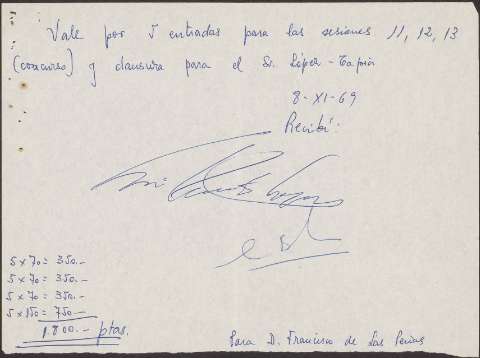 Vale por 5 entradas para las sesiones 11, 12, 13
(concurso) y clausura para el Sr. López-Tapia
8-XI-69
Recibí:
5 x 70 = 350.-
5 x 70 = 350.-
5 x 70 = 350.-
5 x 150 = 750.-
1.800.- ptas.
Para D. Francisco de las Peñas